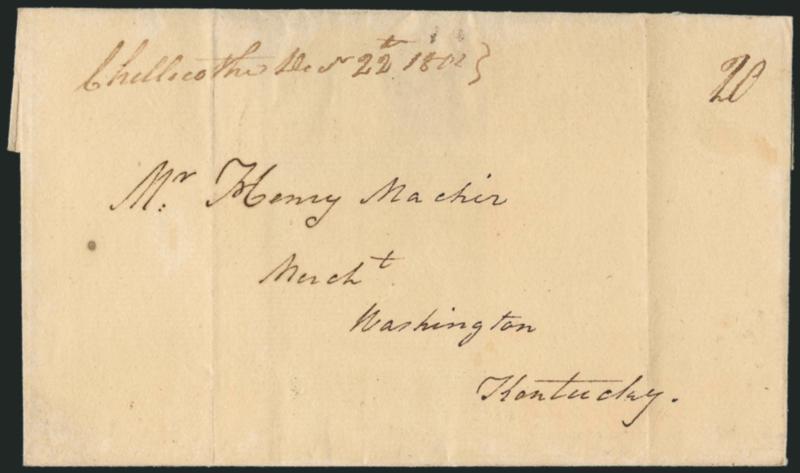 Chellicothe Decr 22t 1802}
20
Mr. Henry Machir
Mercht
Washington
Kentucky.